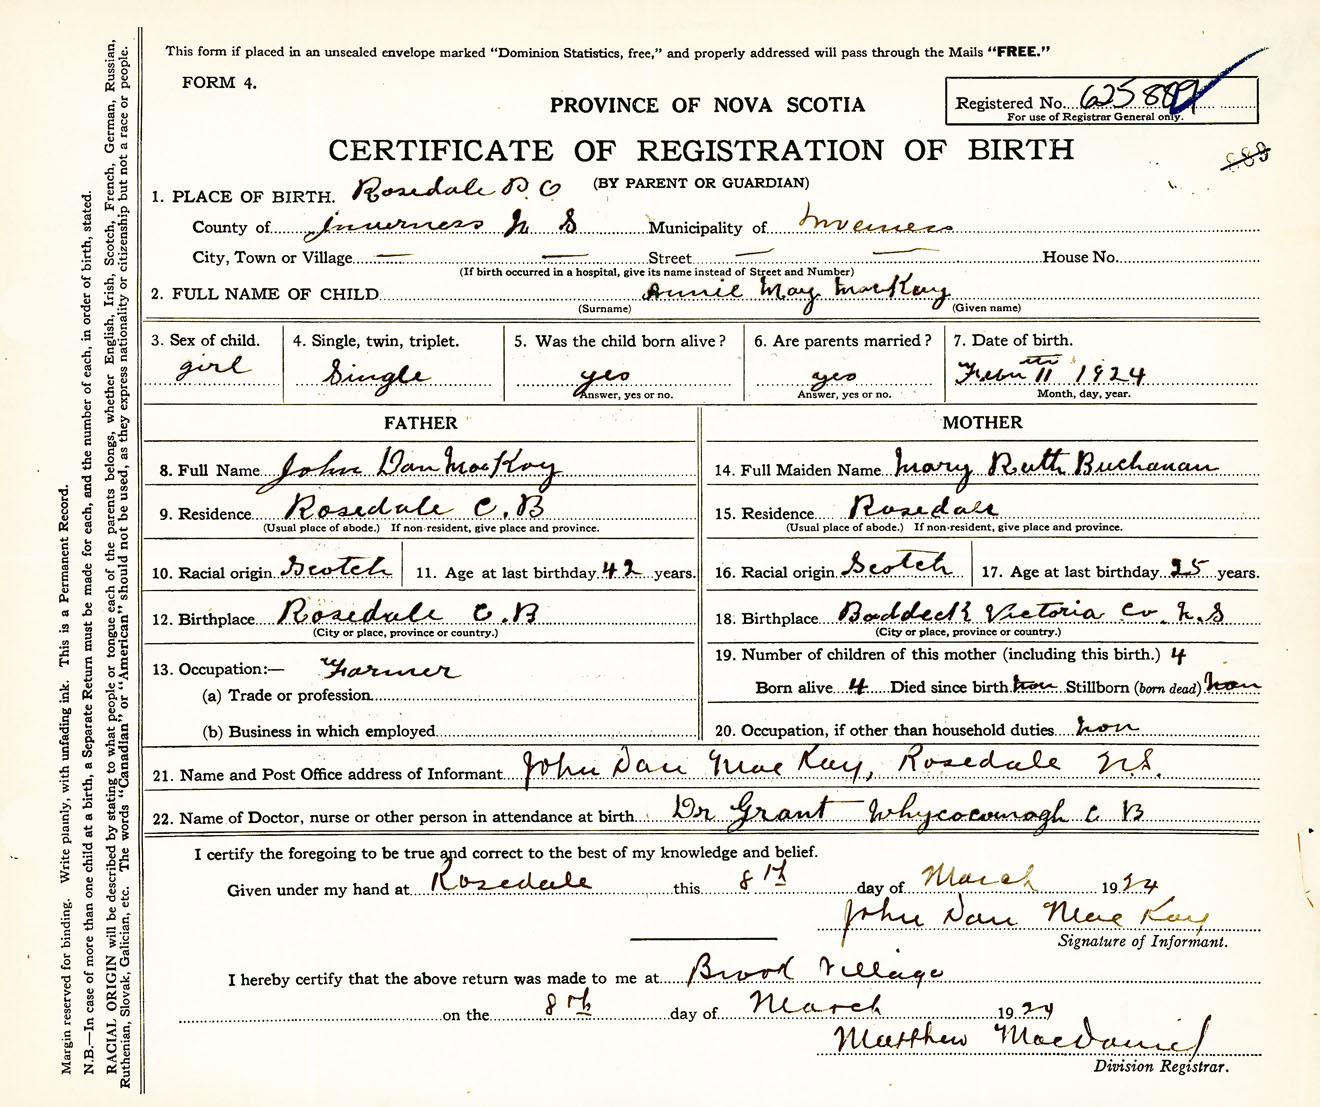 This form if placed in an unsealed envelope marked "Dominion Statistics, free," and properly addressed will pass through the Mails "FREE."
FORM 4.
PROVINCE OF NOVA SCOTIA
Registered No. 625889
For use of Registrar General only.
CERTIFICATE OF REGISTRATION OF BIRTH
889
(BY PARENT OR GUARDIAN)
1. PLACE OF BIRTH. Rosedale P. O
County of Inverness N S Municipality of Inverness
City, Town or Village — — Street — — House No.
(If birth occurred in a hospital, give its name instead of Street and Number)
2. FULL NAME OF CHILD Annie May MacKay
(Surname) (Given name)
3. Sex of child. 4. Single, twin, triplet. 5. Was the child born alive? 6. Are parents married? 7. Date of birth.
girl Single yes yes Febu 11th 1924
Answer, yes or no. Answer, yes or no. Month, day, year.
FATHER MOTHER
8. Full Name John Dan MacKay 14. Full Maiden Name Mary Ruth Buchanan
9. Residence Rosedale C. B 15. Residence Rosedale
(Usual place of abode.) If non-resident, give place and province. (Usual place of abode.) If non-resident, give place and province.
10. Racial origin Scotch 11. Age at last birthday 42 years. 16. Racial origin Scotch 17. Age at last birthday 25 years.
12. Birthplace Rosedale C. B 18. Birthplace Baddeck Victoria Co. N. S
(City or place, province or country.) (City or place, province or country.)
13. Occupation:— Farmer 19. Number of children of this mother (including this birth.) 4
(a) Trade or profession Born alive 4 Died since birth non Stillborn (born dead) non
(b) Business in which employed 20. Occupation, if other than household duties non
21. Name and Post Office address of Informant John Dan MacKay, Rosedale N.S.
22. Name of Doctor, nurse or other person in attendance at birth Dr Grant Whycocomagh C B
I certify the foregoing to be true and correct to the best of my knowledge and belief.
Given under my hand at Rosedale this 8th day of March 1924
John Dan MacKay
Signature of Informant.
I hereby certify that the above return was made to me at Brood Village
on the 8th day of March 1924
Matthew MacDaniel
Division Registrar.
Margin reserved for binding. Write plainly, with unfading ink. This is a Permanent Record.
N.B.—In case of more than one child at a birth, a Separate Return must be made for each, and the number of each, in order of birth, stated.
RACIAL ORIGIN will be described by stating to what people or tongue each of the parents belongs, whether English, Irish, Scotch, French, German, Russian,
Ruthenian, Slovak, Galician, etc. The words "Canadian" or "American" should not be used, as they express nationality or citizenship but not a race or people.